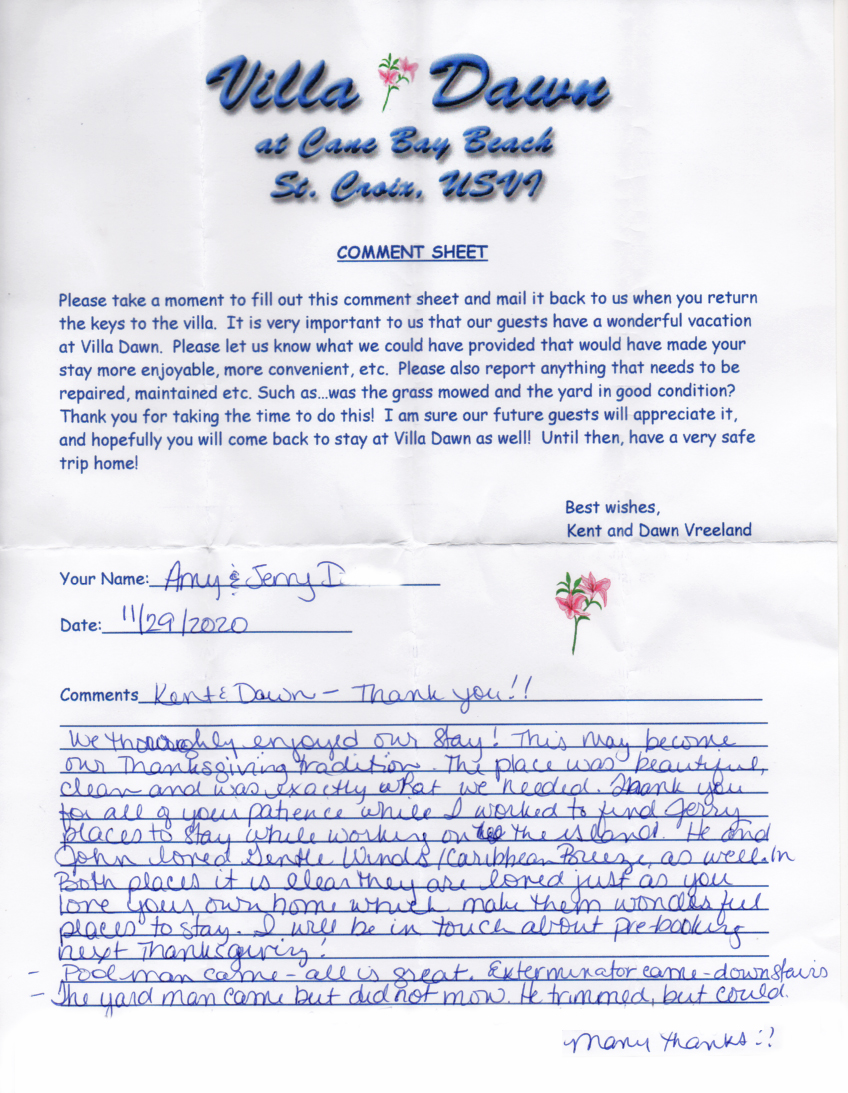 Villa Dawn
at Cane Bay Beach
St. Croix, USVI
COMMENT SHEET
Please take a moment to fill out this comment sheet and mail it back to us when you return
the keys to the villa. It is very important to us that our guests have a wonderful vacation
at Villa Dawn. Please let us know what we could have provided that would have made your
stay more enjoyable, more convenient, etc. Please also report anything that needs to be
repaired, maintained etc. Such as...was the grass mowed and the yard in good condition?
Thank you for taking the time to do this! I am sure our future guests will appreciate it,
and hopefully you will come back to stay at Villa Dawn as well! Until then, have a very safe
trip home!
Best wishes,
Kent and Dawn Vreeland
Your Name: Amy & Jerry D
Date: 11/29/2020
Comments Kent & Dawn - Thank you!!
We thoroughly enjoyed our stay! This may become
our Thanksgiving tradition. The place was beautiful,
clean and was exactly what we needed. Thank you
for all of your patience while I worked to find Jerry
places to stay while working on the island. He and
John loved Gentle Winds/Caribbean Breeze, as well. In
Both places it is clear they are loved just as you
love your own home which make them wonderful
places to stay. I will be in touch about pre-booking
next Thanksgiving!
- Pool man came - all is great. Exterminator came - downstairs
- The yard man came but did not mow. He trimmed, but could.
Many thanks :!